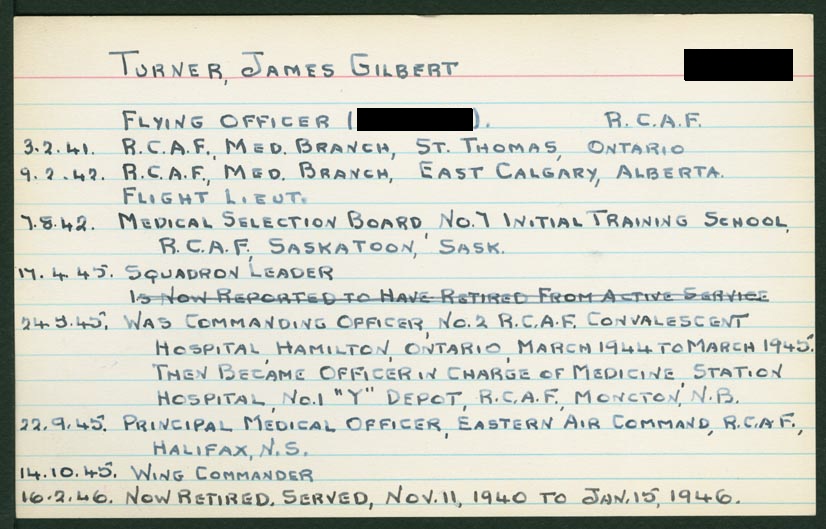 TURNER, JAMES GILBERT
FLYING OFFICER ( ). R.C.A.F.
3.2.41. R.C.A.F., MED. BRANCH, ST. THOMAS, ONTARIO
9.2.42. R.C.A.F., MED. BRANCH, EAST CALGARY, ALBERTA.
FLIGHT LIEUT.
7.8.42. MEDICAL SELECTION BOARD, NO.7 INITIAL TRAINING SCHOOL,
R.C.A.F., SASKATOON, SASK.
17.4.45. SQUADRON LEADER
IS NOW REPORTED TO HAVE RETIRED FROM ACTIVE SERVICE
24.5.45. WAS COMMANDING OFFICER, NO.2 R.C.A.F. CONVALESCENT
HOSPITAL, HAMILTON, ONTARIO, MARCH 1944 TO MARCH 1945.
THEN BECAME OFFICER IN CHARGE OF MEDICINE, STATION
HOSPITAL, NO.1 "Y" DEPOT, R.C.A.F., MONCTON, N.B.
22.9.45. PRINCIPAL MEDICAL OFFICER, EASTERN AIR COMMAND, R.C.A.F.,
HALIFAX, N.S.
14.10.45. WING COMMANDER
16.2.46. NOW RETIRED. SERVED, NOV. 11, 1940 TO JAN. 15, 1946.